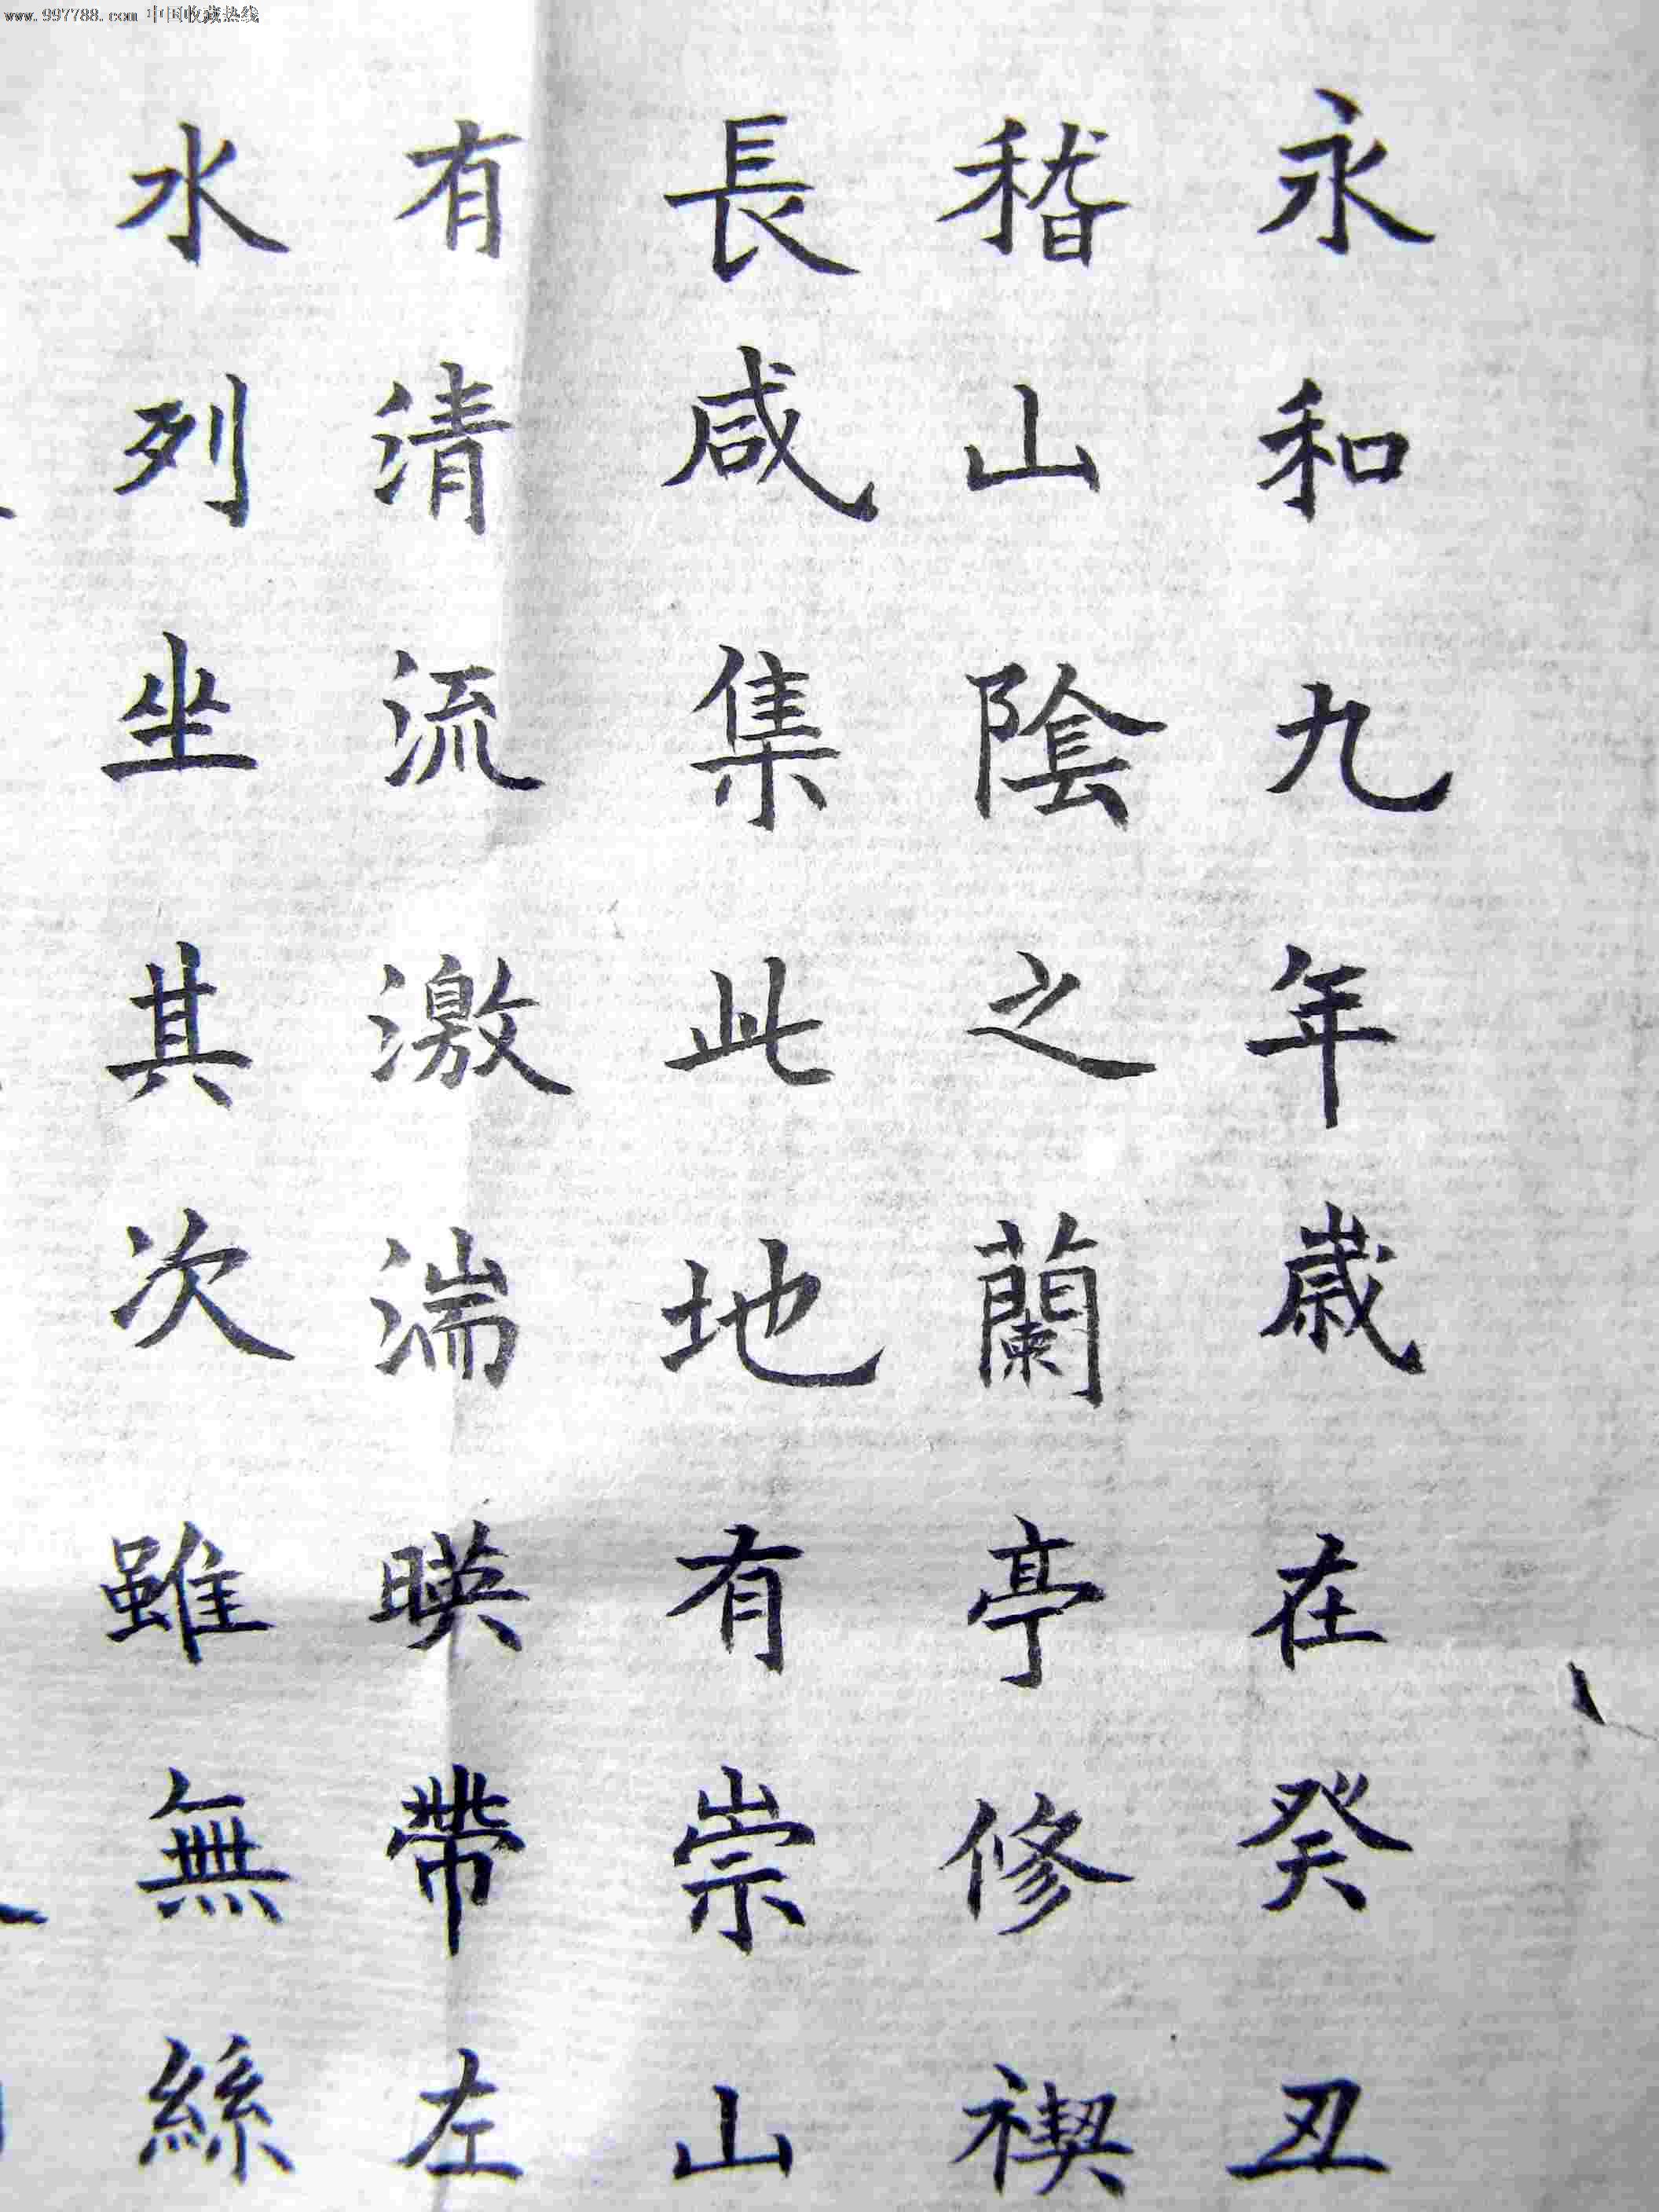 www.997788.com 中国收藏热线
永和九年歲在癸丑
稽山陰之蘭亭修禊
長咸集此地有崇山
有清流激湍暎帶左
水列坐其次雖無絲